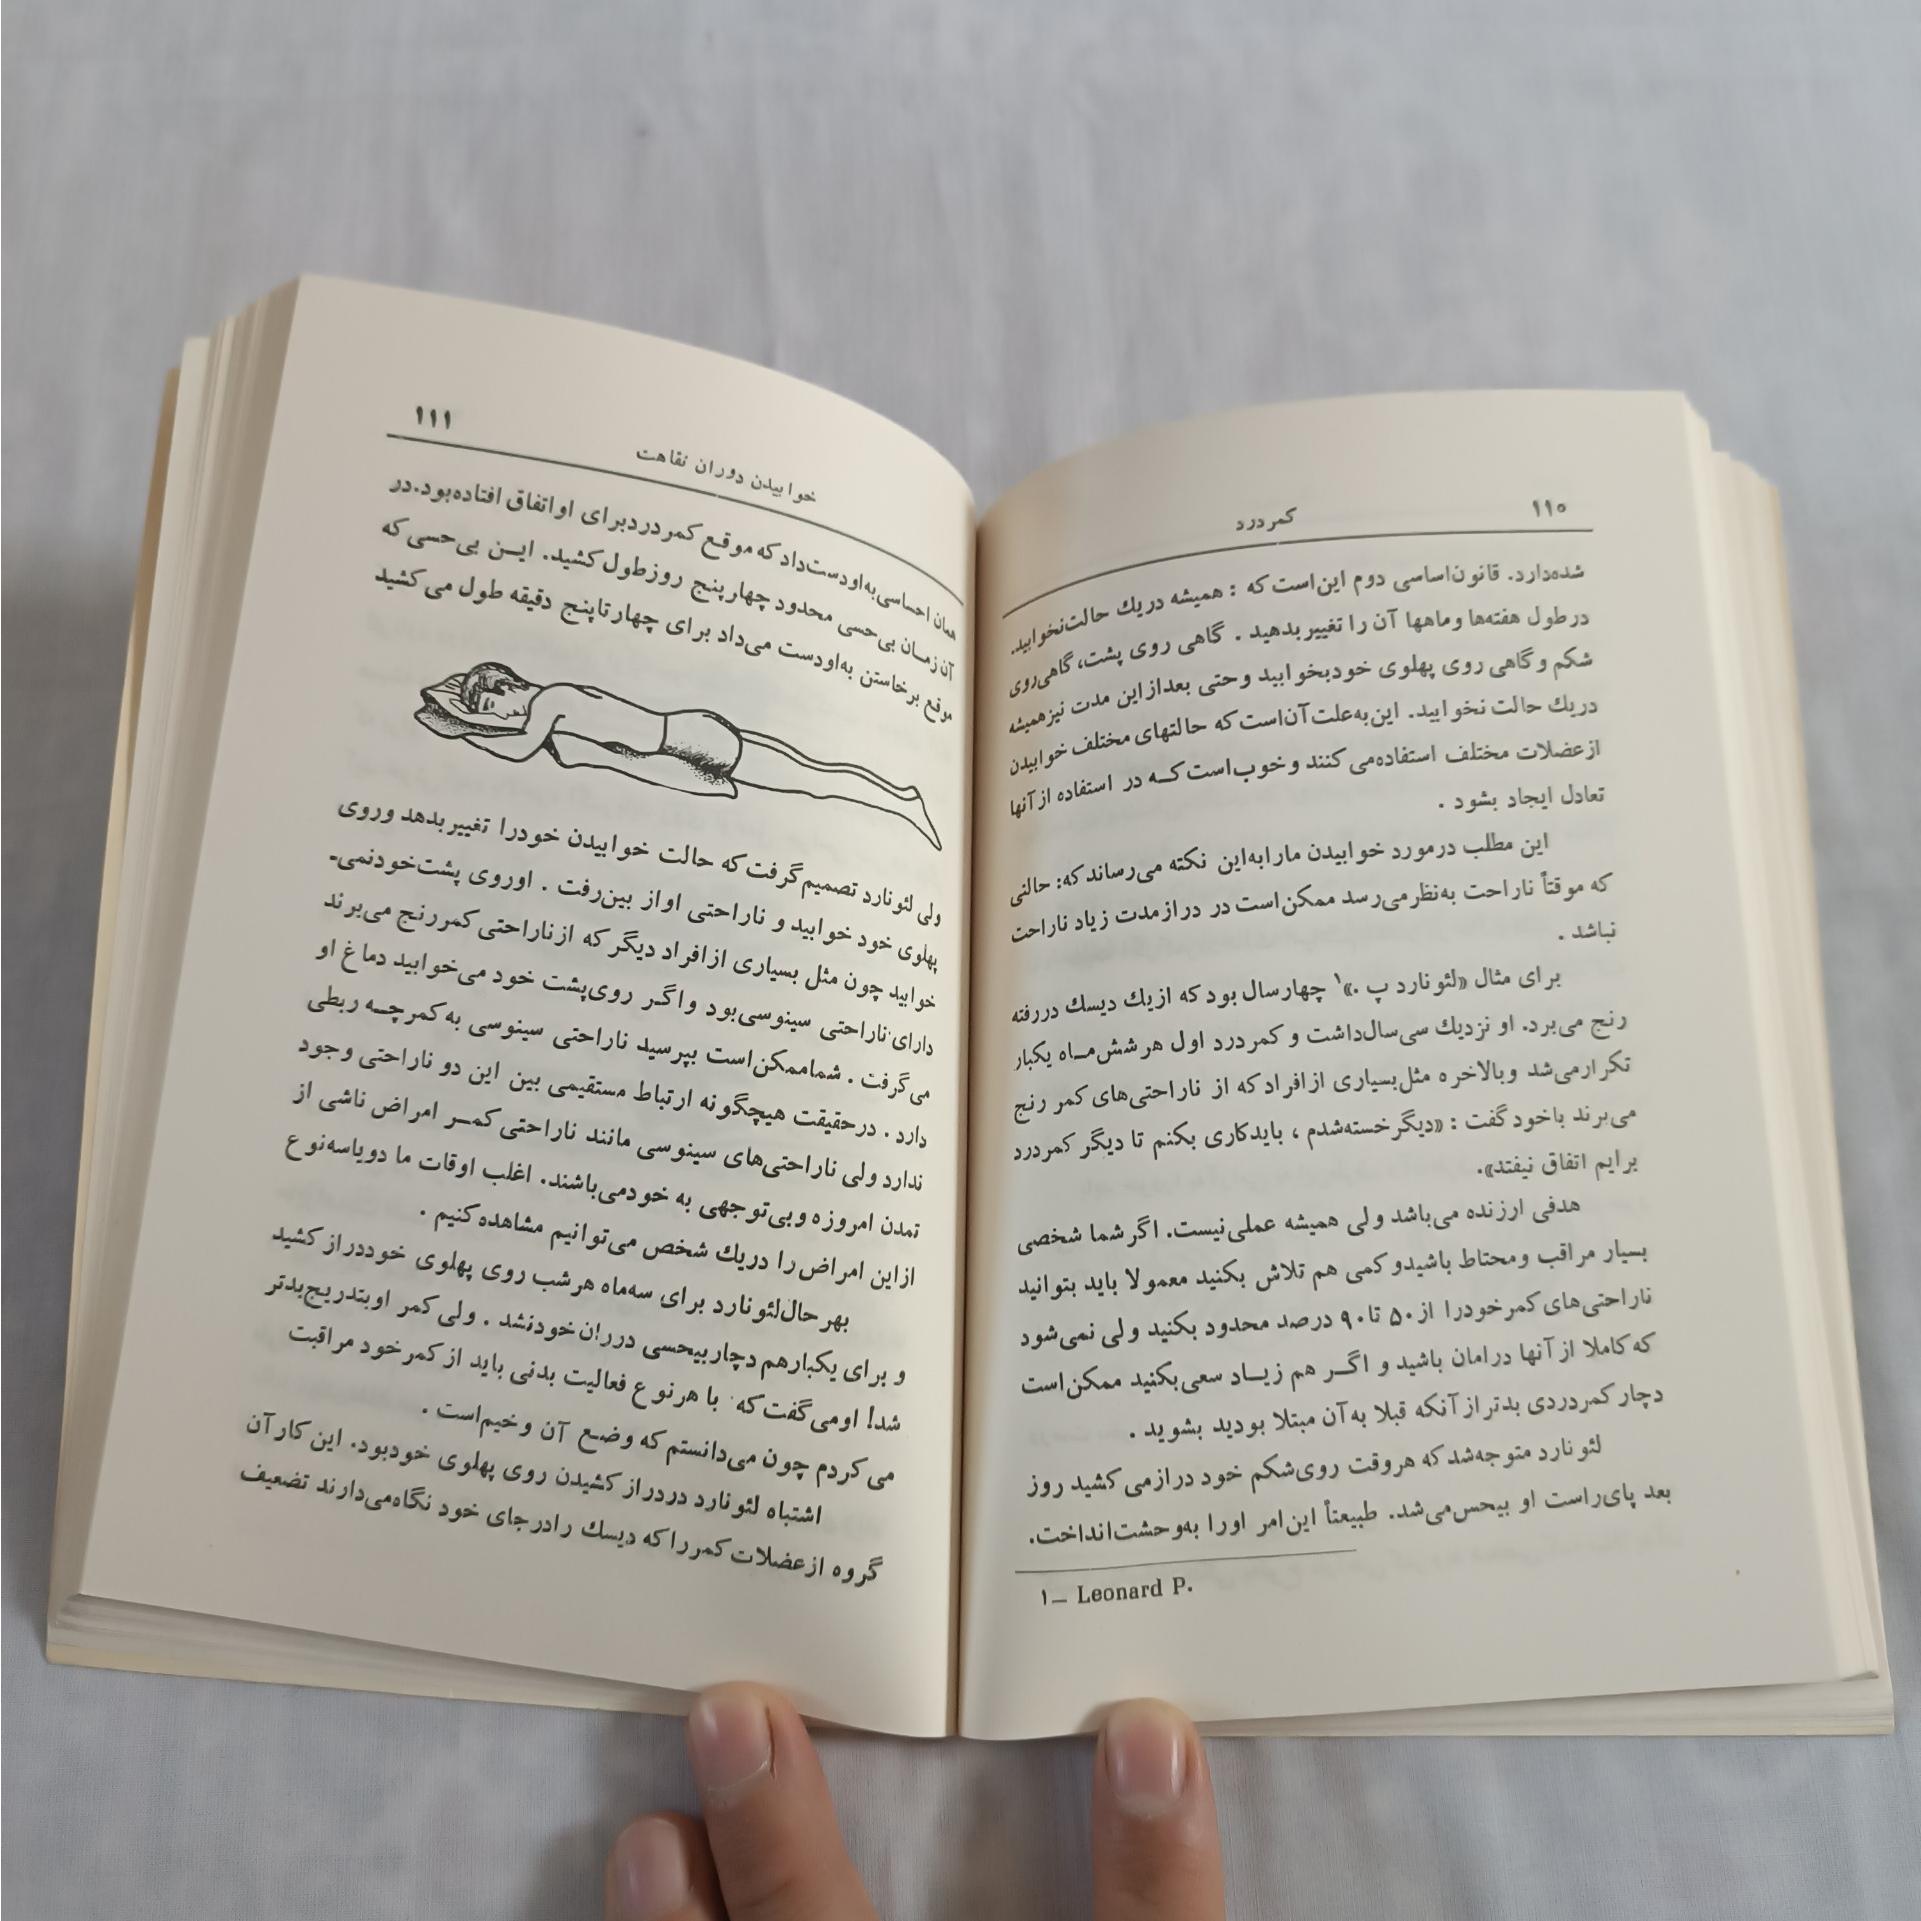 ۱۱۰
کمردرد
شده‌دارد. قانون‌اساسی دوم این‌است که : همیشه دریك حالت‌نخوابید.
درطول هفته‌ها وماهها آن را تغییربدهید . گاهی روی پشت، گاهی‌روی
شکم وگاهی روی پهلوی خودبخوابید وحتی بعدازاین مدت نیزهمیشه
دریك حالت نخوابید. این‌به‌علت‌آن‌است که حالتهای مختلف خوابیدن
ازعضلات مختلف استفاده‌می‌کنند وخوب‌است کــه در استفاده ازآنها
تعادل ایجاد بشود .
این مطلب درمورد خوابیدن مارابه‌این نکته می‌رساند که: حالتی
که موقتاً ناراحت به‌نظرمی‌رسد ممکن‌است در درازمدت زیاد ناراحت
نباشد .
برای مثال «لئونارد پ .»۱ چهارسال بود که ازیك دیسك دررفته
رنج می‌برد. او نزدیك سی‌سال‌داشت و کمردرد اول هرشش‌مــاه یکبار
تکرارمی‌شد وبالاخره مثل‌بسیاری ازافرادکه از ناراحتی‌های کمر رنج
می‌برند باخودگفت : «دیگرخسته‌شدم ، بایدکاری بکنم تا دیگر کمردرد
برایم اتفاق نیفتد».
هدفی ارزنده می‌باشد ولی همیشه عملی‌نیست. اگرشما شخصی
بسیار مراقب ومحتاط باشیدوکمی هم تلاش بکنید معمولا باید بتوانید
ناراحتی‌های کمرخودرا از۵۰ تا۹۰ درصد محدود بکنید ولی نمی‌شود
که کاملا ازآنها درامان باشید و اگــر هم زیــاد سعی‌بکنید ممکن‌است
دچار کمردردی بدترازآنکه قبلا به‌آن مبتلا بودید بشوید .
لئونارد متوجه‌شدکه هروقت روی‌شکم خود درازمی‌کشید روز
بعد پای‌راست او بیحس‌می‌شد. طبیعتاً این‌امر اورا به‌وحشت‌انداخت.
۱– Leonard P.
۱۱۱
خوابیدن دوران نقاهت
همان احساسی‌به‌اودست‌دادکه موقع کمردردبرای اواتفاق افتاده‌بود.در
آن زمــان بی‌حسی محدود چهارپنج روزطول‌کشید. ایــن بی‌حسی که
موقع برخاستن به‌اودست می‌داد برای چهارتاپنج دقیقه طول می‌کشید
ولی لئونارد تصمیم‌گرفت‌که حالت خوابیدن خودرا تغییربدهد وروی
پهلوی خود خوابید و ناراحتی اواز بین‌رفت . اوروی پشت‌خودنمی-
خوابید چون مثل بسیاری ازافراد دیگرکه ازناراحتی کمررنج می‌برند
دارای ناراحتی سینوسی‌بود واگــر روی‌پشت خود می‌خوابید دماغ او
می‌گرفت . شماممکن‌است بپرسید ناراحتی سینوسی به‌کمرچــه ربطی
دارد . درحقیقت هیچگونه ارتباط مستقیمی بین این دو ناراحتی وجود
ندارد ولی ناراحتی‌های سینوسی مانند ناراحتی کمــر امراض ناشی از
تمدن امروزه وبی‌توجهی به خودمی‌باشند. اغلب اوقات ما دویاسه‌نوع
ازاین امراض‌را دریك شخص می‌توانیم مشاهده‌کنیم .
بهرحال‌لئونارد برای سه‌ماه هرشب روی پهلوی خوددرازکشید
و برای یکبارهم دچاربیحسی درران‌خودنشد . ولی کمر اوبتدریج‌بدتر
شد! اومی‌گفت‌که با هرنوع فعالیت بدنی باید ازکمرخود مراقبت
می‌کردم چون می‌دانستم‌که وضع آن وخیم‌است .
اشتباه لئونارد دردرازکشیدن روی پهلوی خودبود. این‌کارآن
گروه ازعضلات کمررا که دیسك رادرجای خود نگاه‌می‌دارند تضعیف